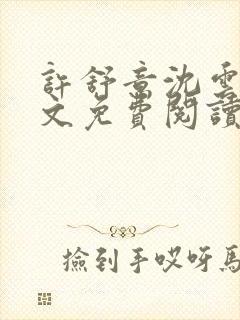 許舒章沈雲
文免費閱讀
撿到手哎呀馬